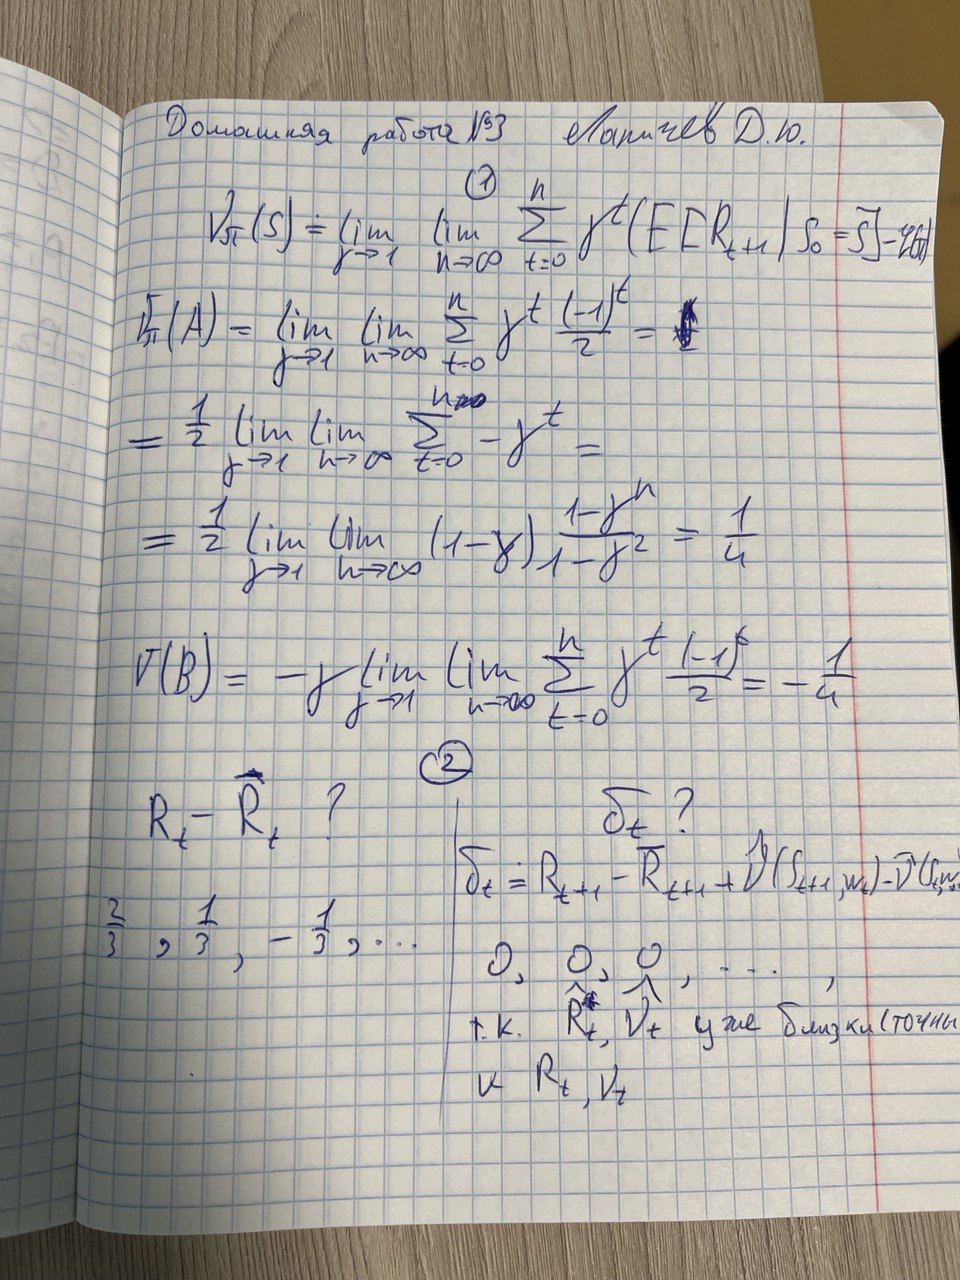 Домашняя работа №3 Лапичев Д.Ю.
①
V_π(S) = lim_{γ→1} lim_{n→∞} Σ_{t=0}^{n} γ^t (E[R_{t+1} | S_0 = S] - r(π))
V_π(A) = lim_{γ→1} lim_{n→∞} Σ_{t=0}^{n} γ^t (-1)^t/2 =
= 1/2 lim_{γ→1} lim_{n→∞} Σ_{t=0}^{n} -γ^t =
= 1/2 lim_{γ→1} lim_{n→∞} (1-γ) (1-γ^n)/(1-γ^2) = 1/4
V(B) = -γ lim_{γ→1} lim_{n→∞} Σ_{t=0}^{n} γ^t (-1)^t/2 = -1/4
②
R_t - R̄_t ?
2/3, 1/3, -1/3, ...
δ_t ?
δ_t = R_{t+1} - R̄_{t+1} + V̂(S_{t+1}, w_t) - V̂(S_t, w_t)
0, 0, 0, ....,
т.к. R̂_t, V̂_t уже близки (точны
к R_t, V_t